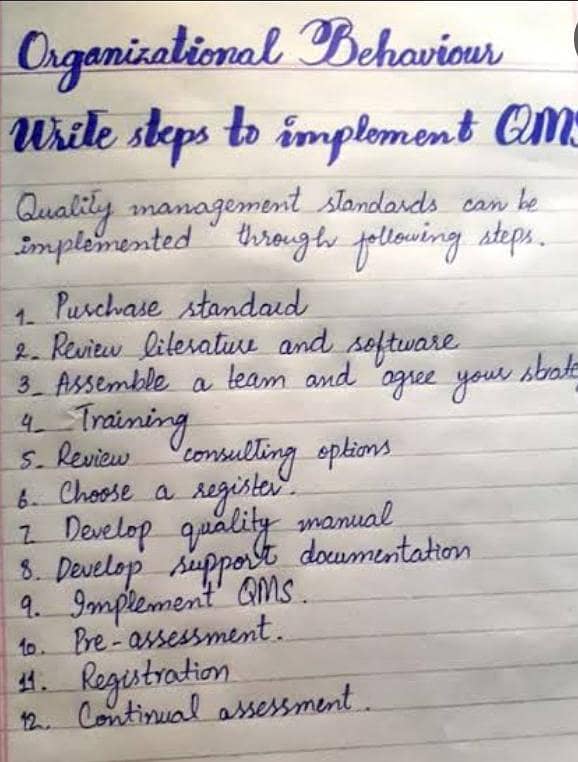 Organizational Behaviour
Write steps to implement QMS
Quality management standards can be
implemented through following steps.
1- Purchase standard
2- Review literature and software
3- Assemble a team and agree your strate
4- Training
5- Review consulting options
6. Choose a register.
7 Develop quality manual
8. Develop support documentation
9. Implement QMS.
10. Pre-assessment.
11. Registration
12. Continual assessment.